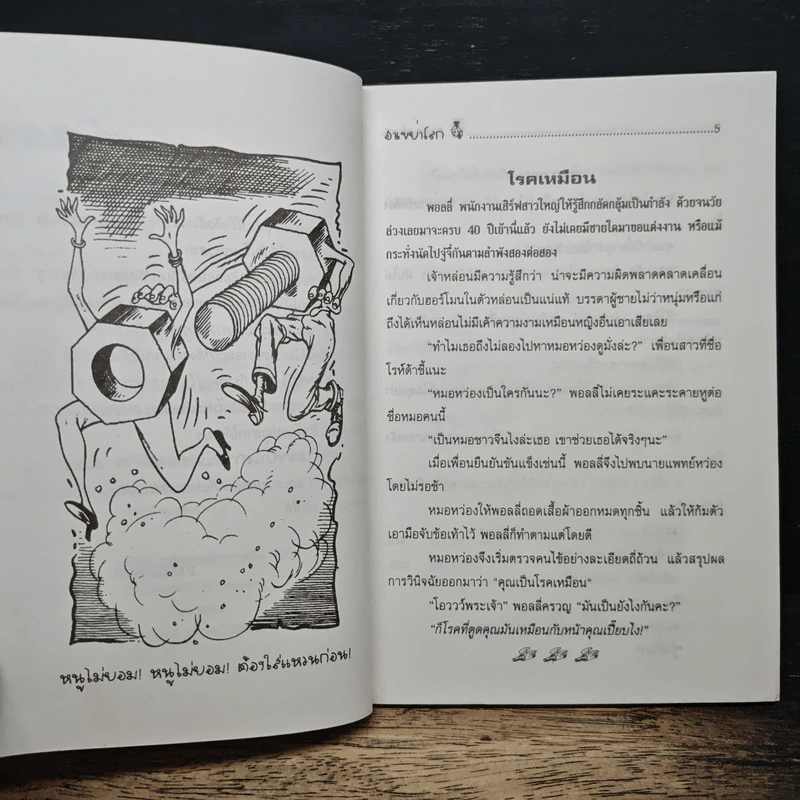 หนูไม่ยอม! หนูไม่ยอม! ต้องใส่แหวนก่อน!
5
โรคเหมือน
พอลลี่ พนักงานเสิร์ฟสาวใหญ่ให้รู้สึกกลัดกลุ้มเป็นกำลัง ด้วยจนวัย
ล่วงเลยมาจะครบ 40 ปีเข้านี่แล้ว ยังไม่เคยมีชายใดมาขอแต่งงาน หรือแม้
กระทั่งนัดไปจู๋จี๋กันตามลำพังสองต่อสอง
เจ้าหล่อนมีความรู้สึกว่า น่าจะมีความผิดพลาดคลาดเคลื่อน
เกี่ยวกับฮอร์โมนในตัวหล่อนเป็นแน่แท้ บรรดาผู้ชายไม่ว่าหนุ่มหรือแก่
ถึงได้เห็นหล่อนไม่มีเค้าความงามเหมือนหญิงอื่นเอาเสียเลย
"ทำไมเธอถึงไม่ลองไปหาหมอหว่องดูมั่งล่ะ?" เพื่อนสาวที่ชื่อ
โรห์ด้าชี้แนะ
"หมอหว่องเป็นใครกันนะ?" พอลลี่ไม่เคยระแคะระคายหูต่อ
ชื่อหมอคนนี้
"เป็นหมอชาวจีนไงล่ะเธอ เขาช่วยเธอได้จริงๆนะ"
เมื่อเพื่อนยืนยันขันแข็งเช่นนี้ พอลลี่จึงไปพบนายแพทย์หว่อง
โดยไม่รอช้า
หมอหว่องให้พอลลี่ถอดเสื้อผ้าออกหมดทุกชิ้น แล้วให้ก้มตัว
เอามือจับข้อเท้าไว้ พอลลี่ก็ทำตามแต่โดยดี
หมอหว่องจึงเริ่มตรวจคนไข้อย่างละเอียดถี่ถ้วน แล้วสรุปผล
การวินิจฉัยออกมาว่า "คุณเป็นโรคเหมือน"
"โอววว์พระเจ้า" พอลลี่ครวญ "มันเป็นยังไงกันคะ?"
"ก็โรคที่ตูดคุณมันเหมือนกับหน้าคุณเปี๊ยบไง!"